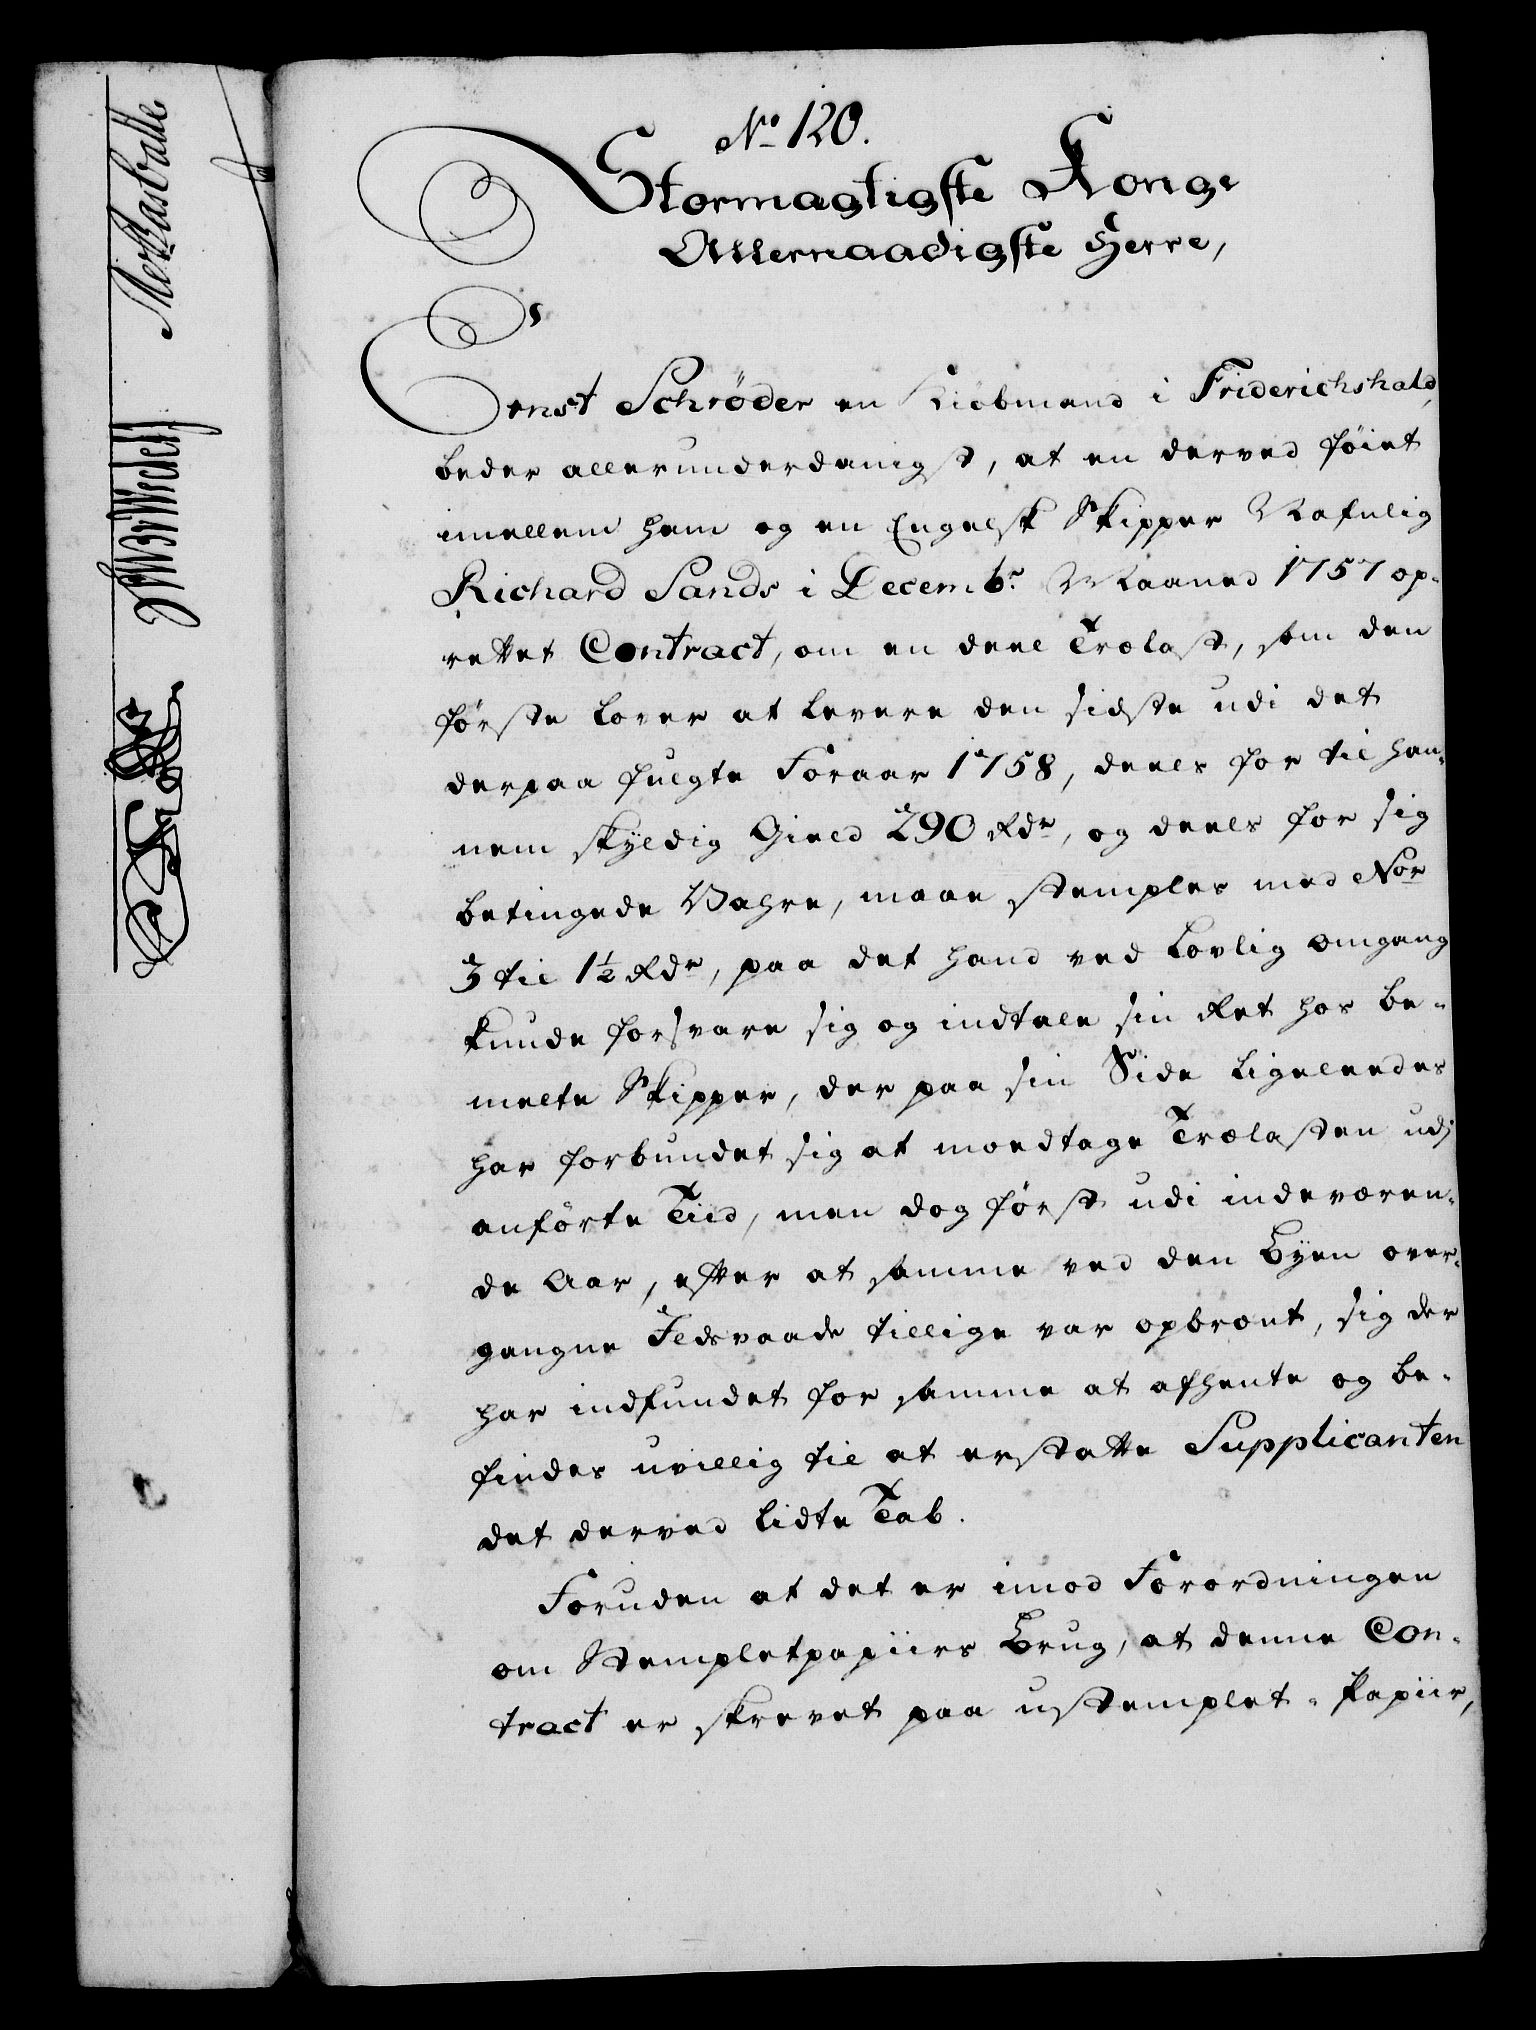 No 120.
Stormagtigste Konge
Allernaadigste Herre,
Ernst Schrøder en Kiøbmand i Friderichshald,
beder allerunderdanigst, at en derved føiet
imellem ham og en Engelsk Skipper Nafnlig
Richard Sands i Decembr Maaned 1757 op-
rettet Contract, om en deel Trælast, som den
første lover at levere den sidste udi det
derpaa fulgte Foraar 1758, deels for til han-
nem skyldig Gield 290 Rdr, og deels for sig
betingede Vahre, maae stemples med Nor
3 til 1½ Rdr, paa det hand ved Lovlig omgang
kunde forsvare sig og indtale sin Ret hos be-
melte Skipper, der paa sin Side ligeleedes
har forbundet sig at modtage Trælasten udj
anførte Tiid, men dog først udi indeværen-
de Aar, efter at samme ved den Byen over-
gangne Ildsvaade tillige var opbrænt, sig der
har indfundet for samme at afhente og be-
findes uvillig til at erstatte Supplicanten
det derved lidte Tab.
Foruden at det er imod Forordningen
om Stempletpapiirs Brug, at denne Con-
tract er skrevet paa ustemplet-Papiir,